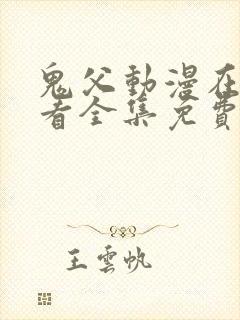 鬼父動漫在
看全集免費
王雲帆